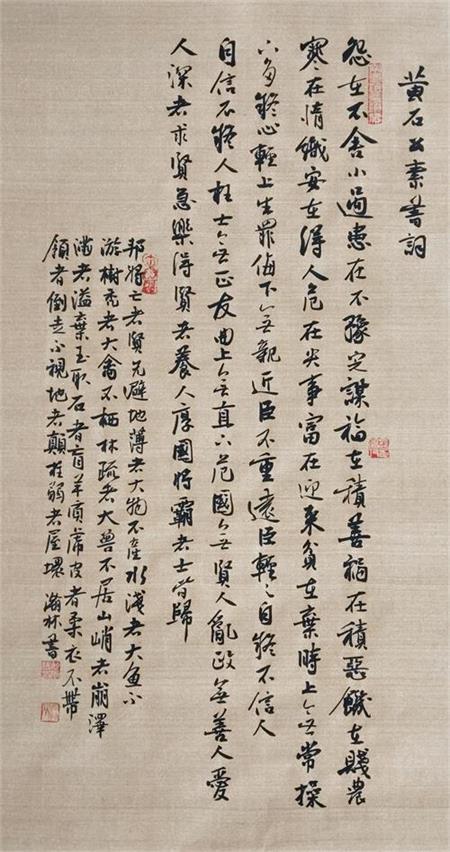 黄石公素書詞
怨在不舍小過患在不豫定謀福在積善禍在積惡饑在賤農
寒在惰織安在得人危在失事富在迎来貧在棄時上無常操
下多疑心輕上生罪侮下無親近臣不重遠臣輕之自疑不信人
自信不疑人枉士無正友曲上無直下危國無賢人亂政無善人愛
人深者求賢急樂得賢者養人厚國將霸者士皆歸
邦將亡者賢先避地薄者大物不產水淺者大魚不
游樹禿者大禽不栖林疏者大兽不居山峭者崩澤
满者溢棄玉取石者盲羊質虎皮者柔衣不带
領者倒走不視地者顛柱弱者屋壞 瀚林書